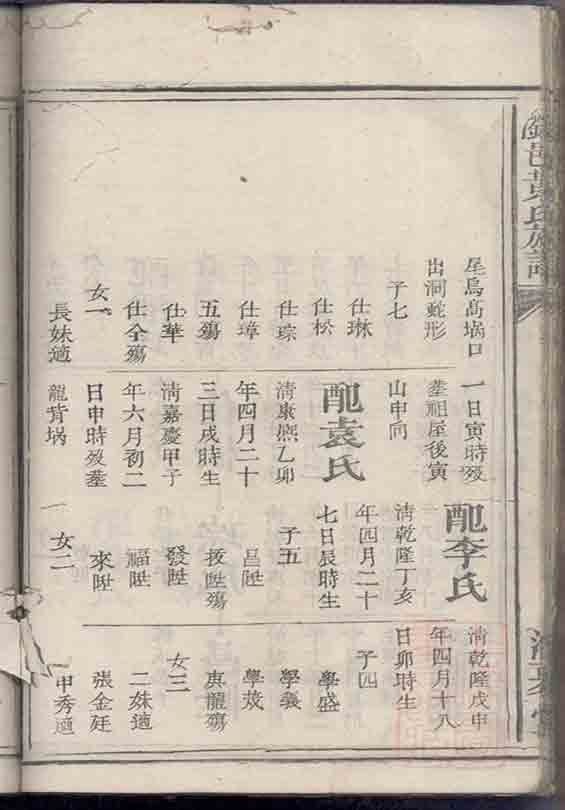 邑黃氏族譜
尾烏髙堝口
出洞蛇形
子七
仕琳
仕松
仕琮
仕璋
五殤
仕華
仕全殤
女一
長妹適
一日寅時歿
墓祖屋後寅
山申向
配袁氏
清康熙乙卯
年四月二十
三日戌時生
清嘉慶甲子
年六月初二
日申時歿墓
龍背堝
配李氏
清乾隆丁亥
年四月二十
七日辰時生
子五
昌陞
拔陞殤
發陞
福陞
來陞
女二
清乾隆戊申
年四月十八
日卯時生
子四
學盛
學義
學茂
龍殤
女三
二妹適
張金廷
申秀適